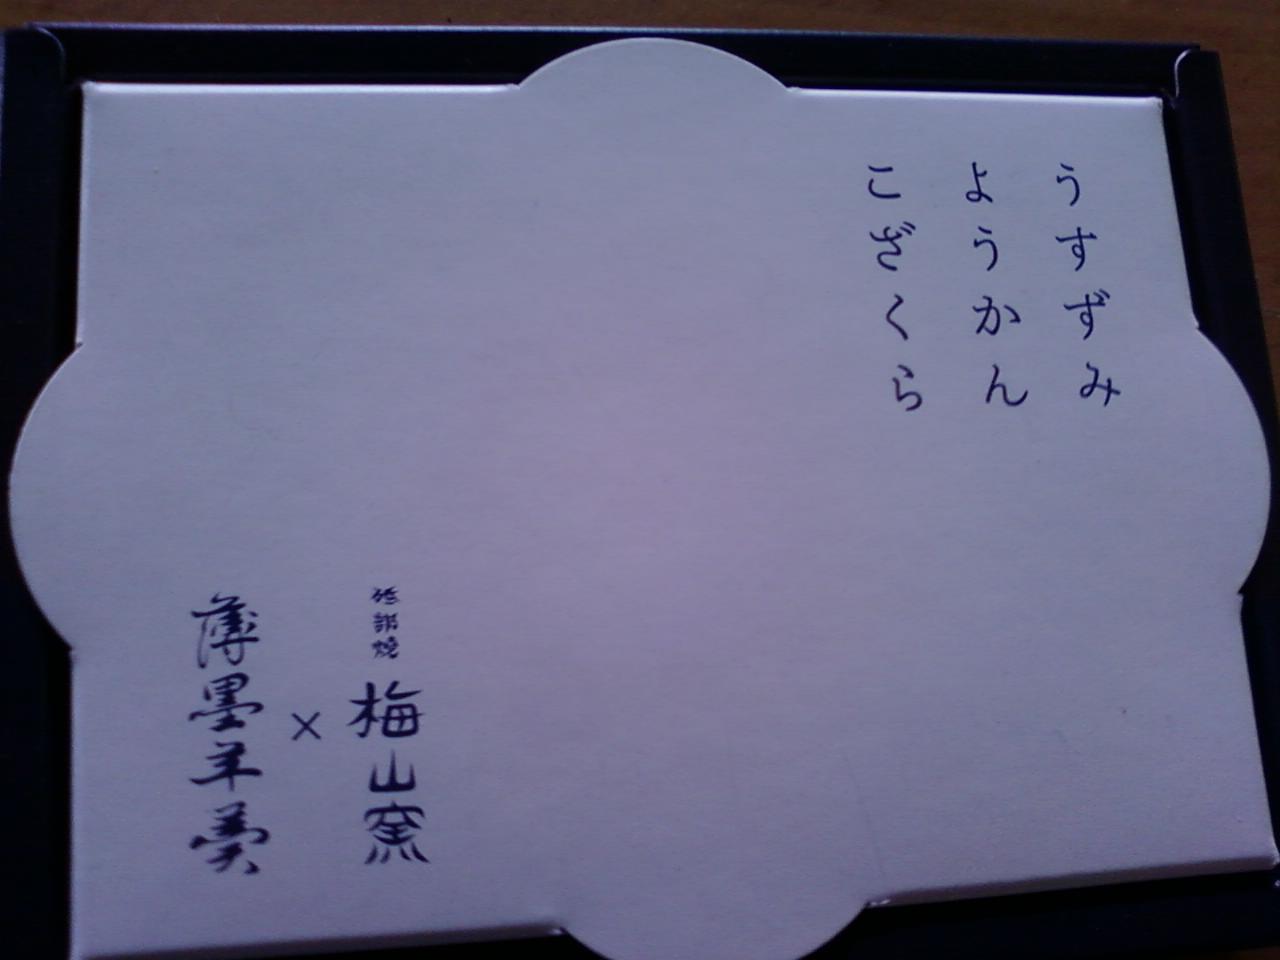 うすずみ
ようかん
こざくら
砥部焼 梅山窯
×
薄墨羊羹